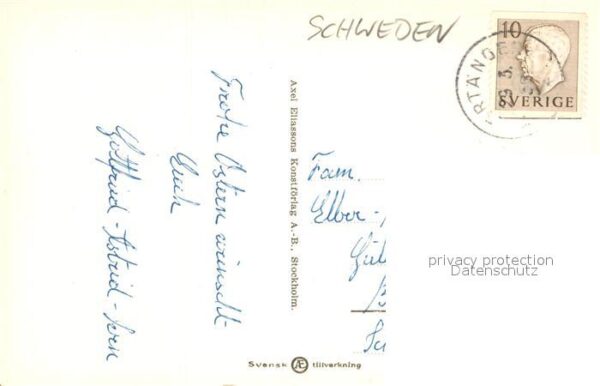 SCHWEDEN
10
SVERIGE
Frohe Ostern wünscht
Euch
Gottfried - Astrid - Sven
Axel Eliassons Konstförlag A.-B., Stockholm.
Fam.
Elber-
privacy protection
Datenschutz
Svensk Æ tillverkning